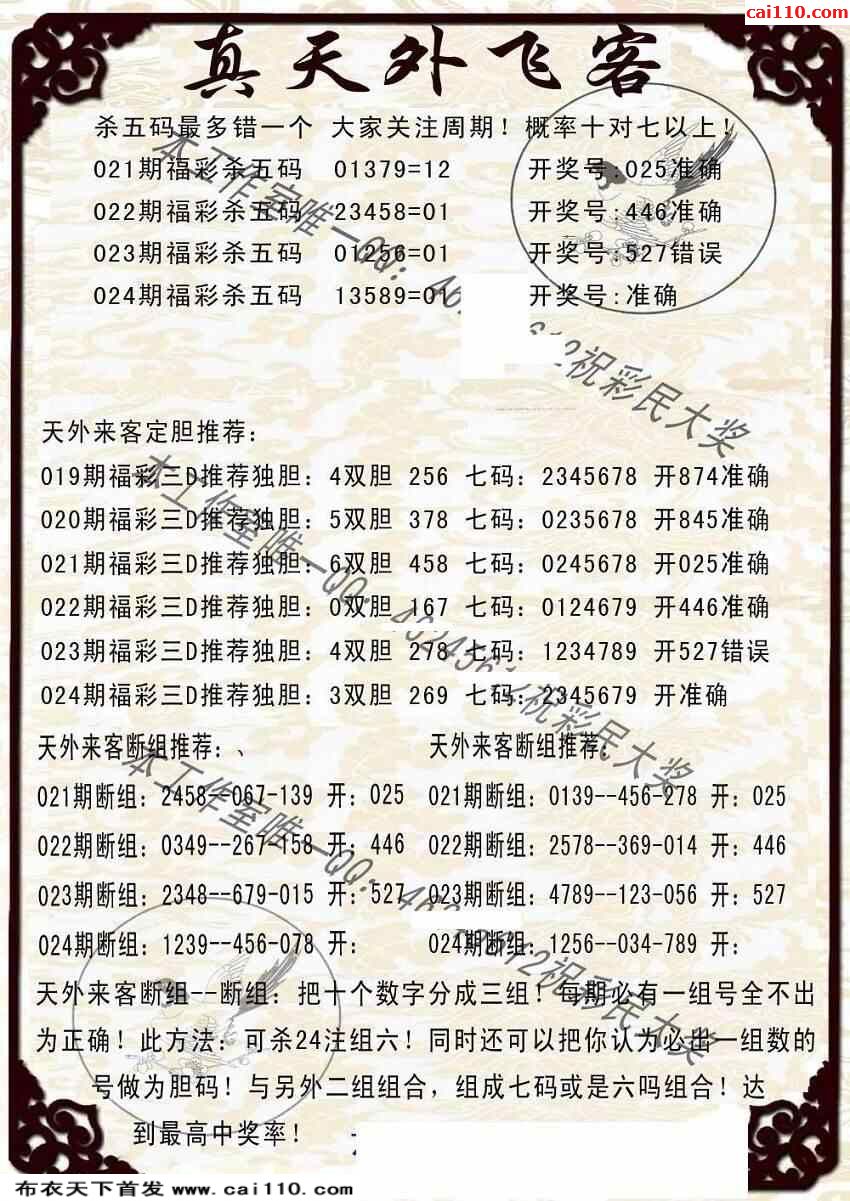 cai110.com
真天外飞客
杀五码最多错一个 大家关注周期！概率十对七以上！
021期福彩杀五码 01379=12 开奖号:025准确
022期福彩杀五码 23458=01 开奖号:446准确
023期福彩杀五码 01256=01 开奖号:527错误
024期福彩杀五码 13589=01 开奖号:准确
天外来客定胆推荐：
019期福彩三D推荐独胆：4双胆 256 七码：2345678 开874准确
020期福彩三D推荐独胆：5双胆 378 七码：0235678 开845准确
021期福彩三D推荐独胆：6双胆 458 七码：0245678 开025准确
022期福彩三D推荐独胆：0双胆 167 七码：0124679 开446准确
023期福彩三D推荐独胆：4双胆 278 七码：1234789 开527错误
024期福彩三D推荐独胆：3双胆 269 七码：2345679 开准确
天外来客断组推荐：、 天外来客断组推荐：
021期断组：2458--067-139 开：025 021期断组：0139--456-278 开：025
022期断组：0349--267-158 开：446 022期断组：2578--369-014 开：446
023期断组：2348--679-015 开：527 023期断组：4789--123-056 开：527
024期断组：1239--456-078 开： 024期断组：1256--034-789 开：
天外来客断组--断组：把十个数字分成三组！每期必有一组号全不出
为正确！此方法：可杀24注组六！同时还可以把你认为必出一组数的
号做为胆码！与另外二组组合，组成七码或是六吗组合！达
到最高中奖率！
本工作室唯一QQ：
祝彩民大奖
本工作室唯一QQ：
祝彩民大奖
本工作室唯一QQ：
祝彩民大奖
布衣天下首发 www.cai110.com